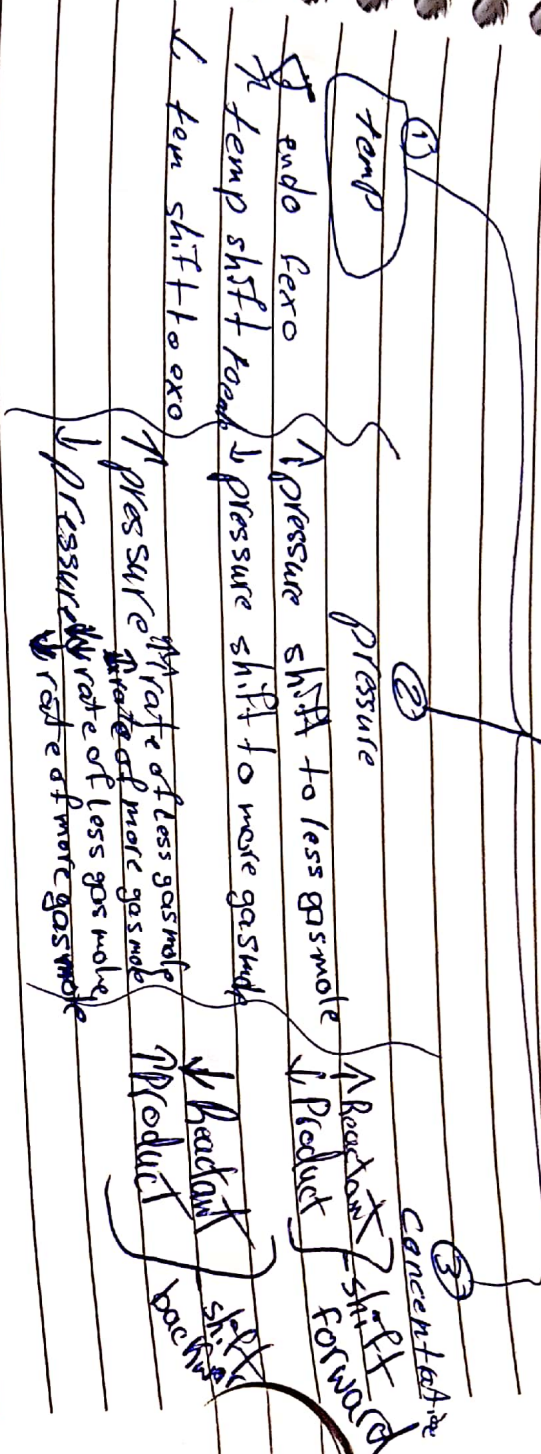 ①
temp
endo & exo
↑ temp shift to endo
↓ tem shift to exo
②
pressure
↑ pressure shift to less gas mole
↓ pressure shift to more gas mole
↑ pressure ↑↑ rate of less gas mole
↑ rate of more gas mole
↓ pressure ↓↓ rate of less gas mole
↓ rate of more gas mole
③
concentration
↑ Reactant
↓ Product
shift
forward
↓ Reactant
↑ Product
shift